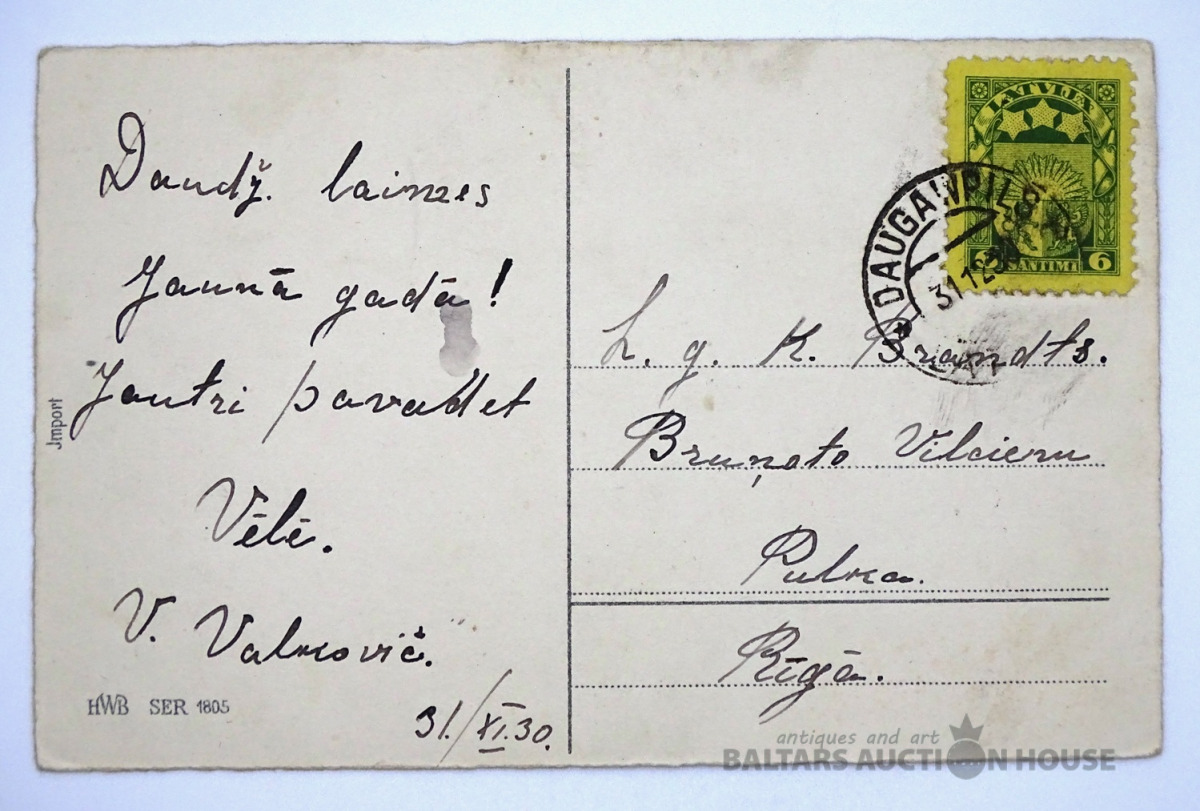 Daudz. laimes
Jaunā gadā!
Jautri pavadet
Vēlē.
V. Valkovič.
31./XI.30.
Import
HWB SER 1805
LATVIJA
6 SANTIMI 6
DAUGAWPILS
31 12 30
L. g. K. Brandts.
Bruņoto Vilcienu
Pulka.
Rīgā.
antiques and art
BALTARS AUCTION HOUSE